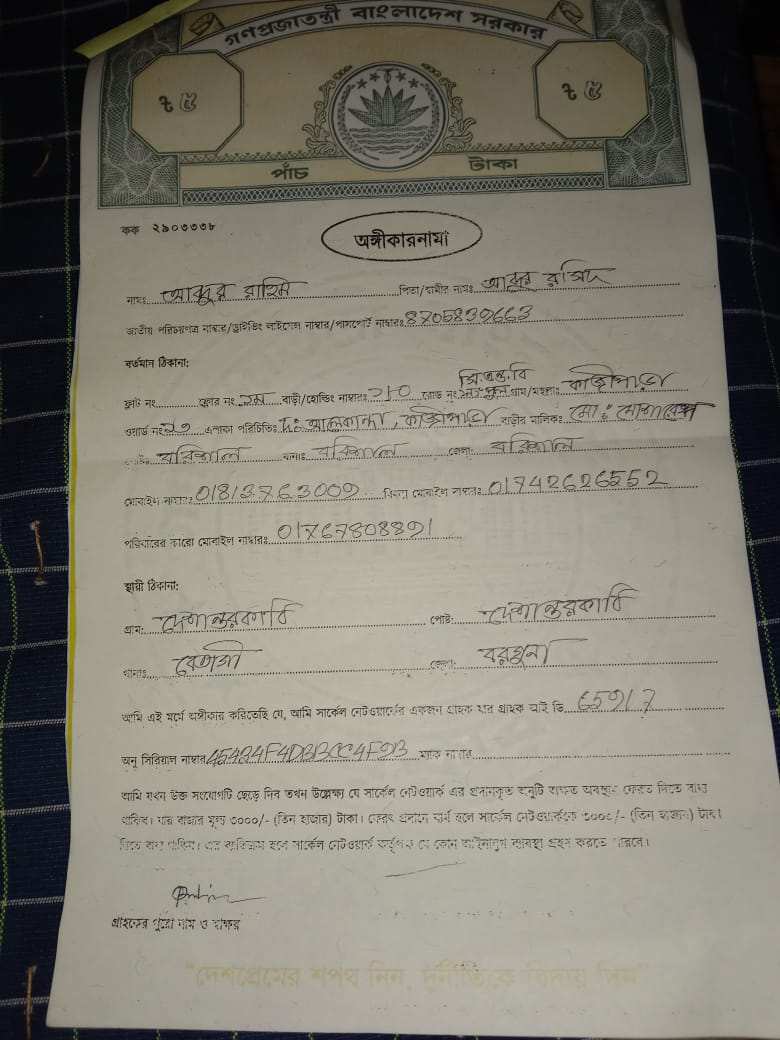 গণপ্রজাতন্ত্রী বাংলাদেশ সরকার
৳ ৫ ৳ ৫
পাঁচ টাকা
কক ২৯০৩৩৩৮
অঙ্গীকারনামা
নামঃ আব্দুর রহিম পিতা/স্বামীর নামঃ আব্দুর রসিদ
জাতীয় পরিচয়পত্র নাম্বার/ড্রাইভিং লাইসেন্স নাম্বার/পাসপোর্ট নাম্বারঃ
বর্তমান ঠিকানা:
ফ্লাট নং ফ্লোর নং বাড়ী/হোল্ডিং নাম্বারঃ রোড নং সি.এন্ড.বি গ্রাম/মহল্লাঃ কাজীপাড়া
ওয়ার্ড নং এলাকা পরিচিতিঃ দঃ আলেকান্দা, কাজীপাড়া বাড়ীর মালিকঃ মোঃ
বরিশাল থানাঃ বরিশাল জেলা: বরিশাল
মোবাইল নাম্বারঃ বিকল্প মোবাইল নাম্বারঃ 01742626552
পরিবারের কারো মোবাইল নাম্বারঃ
স্থায়ী ঠিকানা:
গ্রাম: দেশান্তরকাঠি পোষ্ট: দেশান্তরকাঠি
থানাঃ বেতাগী জেলা: বরগুনা
আমি এই মর্মে অঙ্গীকার করিতেছি যে, আমি সার্কেল নেটওয়ার্কের একজন গ্রাহক যার গ্রাহক আই ডি
অনু সিরিয়াল নাম্বার ম্যাক নাম্বার
আমি যখন উক্ত সংযোগটি ছেড়ে দিব তখন উল্লেখ্য যে সার্কেল নেটওয়ার্ক এর প্রদানকৃত অনুটি অক্ষত অবস্থায় ফেরত দিতে বাধ্য
থাকিব। যার বাজার মূল্য ৩০০০/- (তিন হাজার) টাকা। ফেরৎ প্রদানে ব্যর্থ হলে সার্কেল নেটওয়ার্ককে ৩০০০/- (তিন হাজার) টাকা
দিতে বাধ্য থাকিব। এর ব্যতিক্রম হলে সার্কেল নেটওয়ার্ক কর্তৃপক্ষ যে কোন আইনানুগ ব্যবস্থা গ্রহন করতে পারবে।
গ্রাহকের পুরো নাম ও স্বাক্ষর
“দেশপ্রেমের শপথ নিন, দুর্নীতিকে বিদায় দিন”